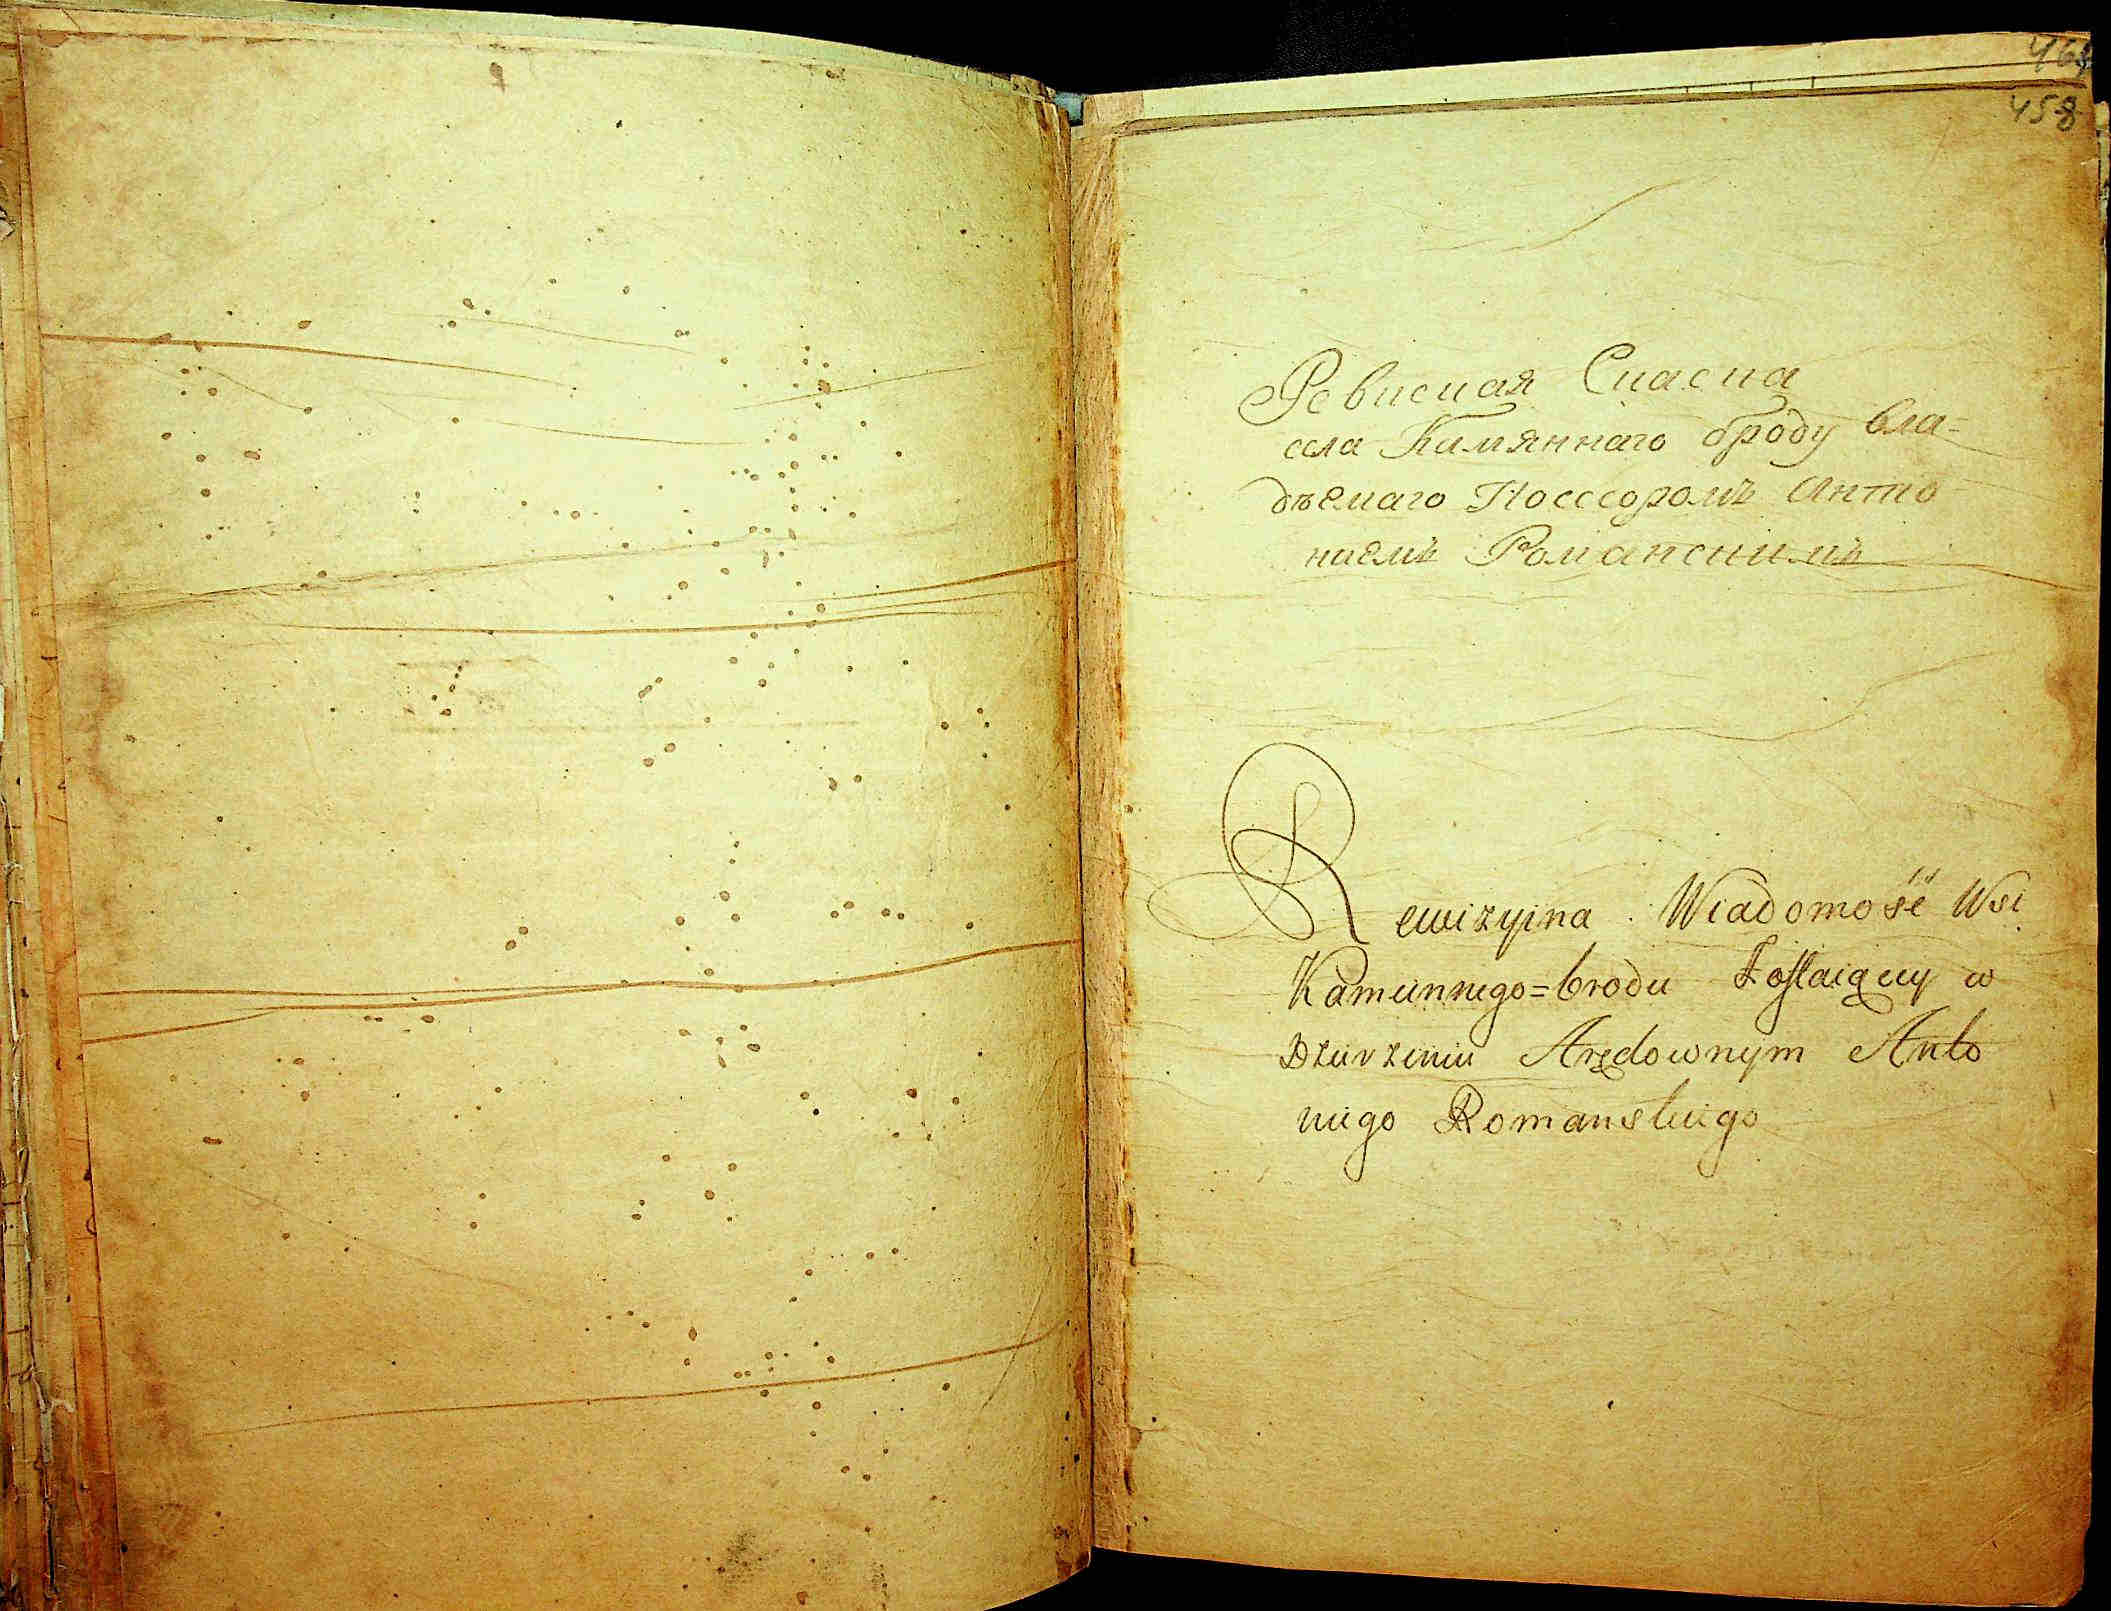 458
Ревиская Сказка
села Камяннаго броду вла=
дѣемаго Поссесоромъ Анто
ніемъ Романскимъ
Rewizyina Wiadomość Wsi
Kamiennego=brodu Zostaiącey w
Dzierzeniu Arędownym Anto
niego Romanskiego